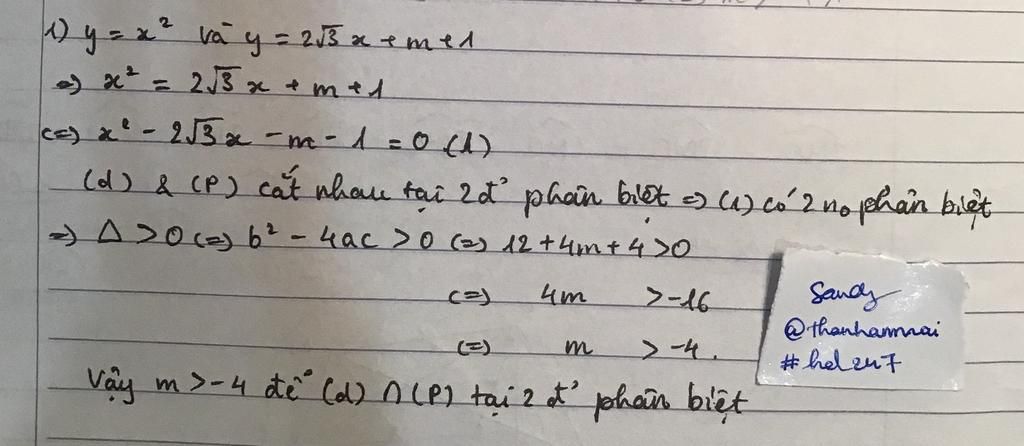 1) y = x² và y = 2√3 x + m + 1
=> x² = 2√3 x + m + 1
<=> x² - 2√3x - m - 1 = 0 (1)
(d) & (P) cắt nhau tại 2 đ' phân biệt => (1) có 2 no phân biệt
=> Δ > 0 <=> b² - 4ac > 0 <=> 12 + 4m + 4 > 0
<=> 4m > -16
<=> m > -4.
Vậy m > -4 để (d) ∩ (P) tại 2 đ' phân biệt
Sandy
@thanhamnai
#hel247